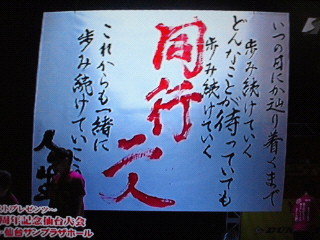 いつの日にか辿り着くまで
歩み続けていく
どんなことが待っていても
歩み続けていく
同行二人
これからも一緒に
歩み続けていこ
周年記念仙台大会
仙台サンプラザホール